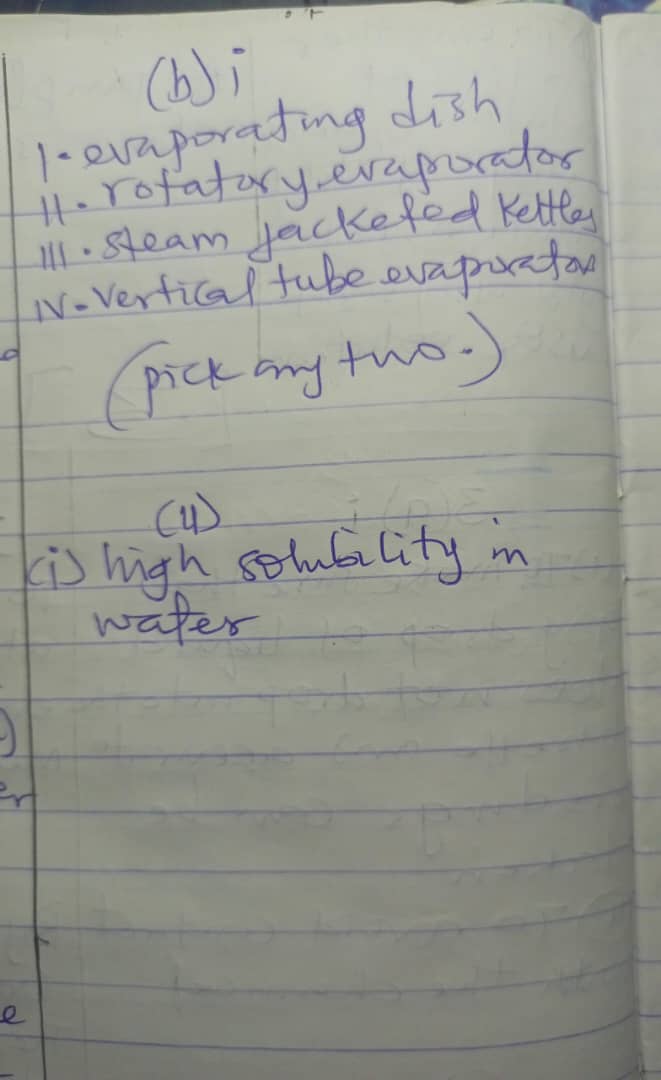 (b) i
I. evaporating dish
II. rotatory evaporator
III. steam jacketed kettles
IV. Vertical tube evaporator
(pick any two.)
(ii)
(i) high solubility in
water
er
e